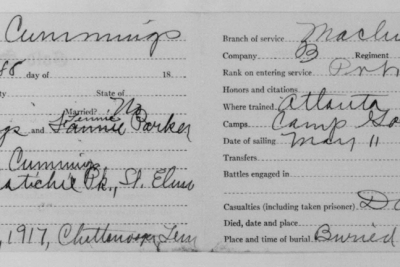 Cummings
day of 18
State of
Married? No
Jennie
and Fannie Parker
Cummings
Pk., St. Elmo
, 1917, Chattanooga, Tenn
Branch of service
Company B Regiment
Rank on entering service
Honors and citations
Where trained, Atlanta
Camps, Camp
Date of sailing May 11
Transfers
Battles engaged in
Casualties (including taken prisoner)
Died, date and place
Place and time of burial Buried